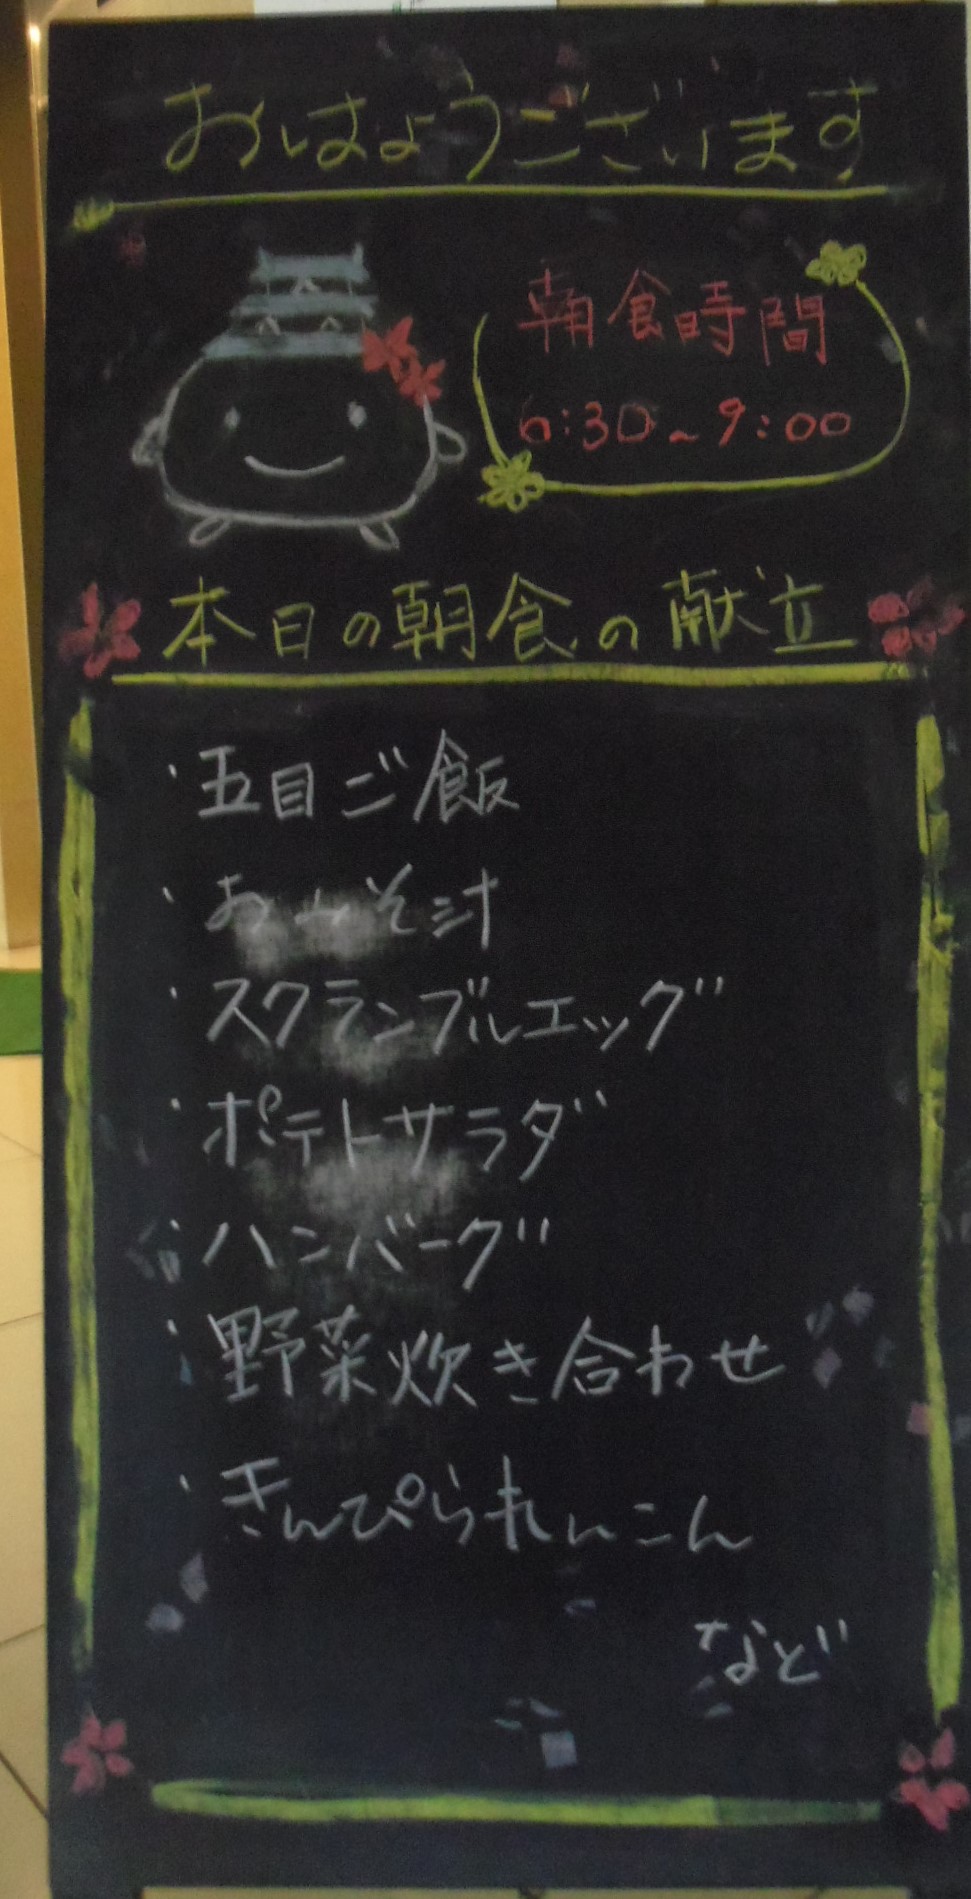 おはようございます
朝食時間
6:30~9:00
本日の朝食の献立
・五目ご飯
・おみそ汁
・スクランブルエッグ
・ポテトサラダ
・ハンバーグ
・野菜炊き合わせ
・きんぴられんこん
など